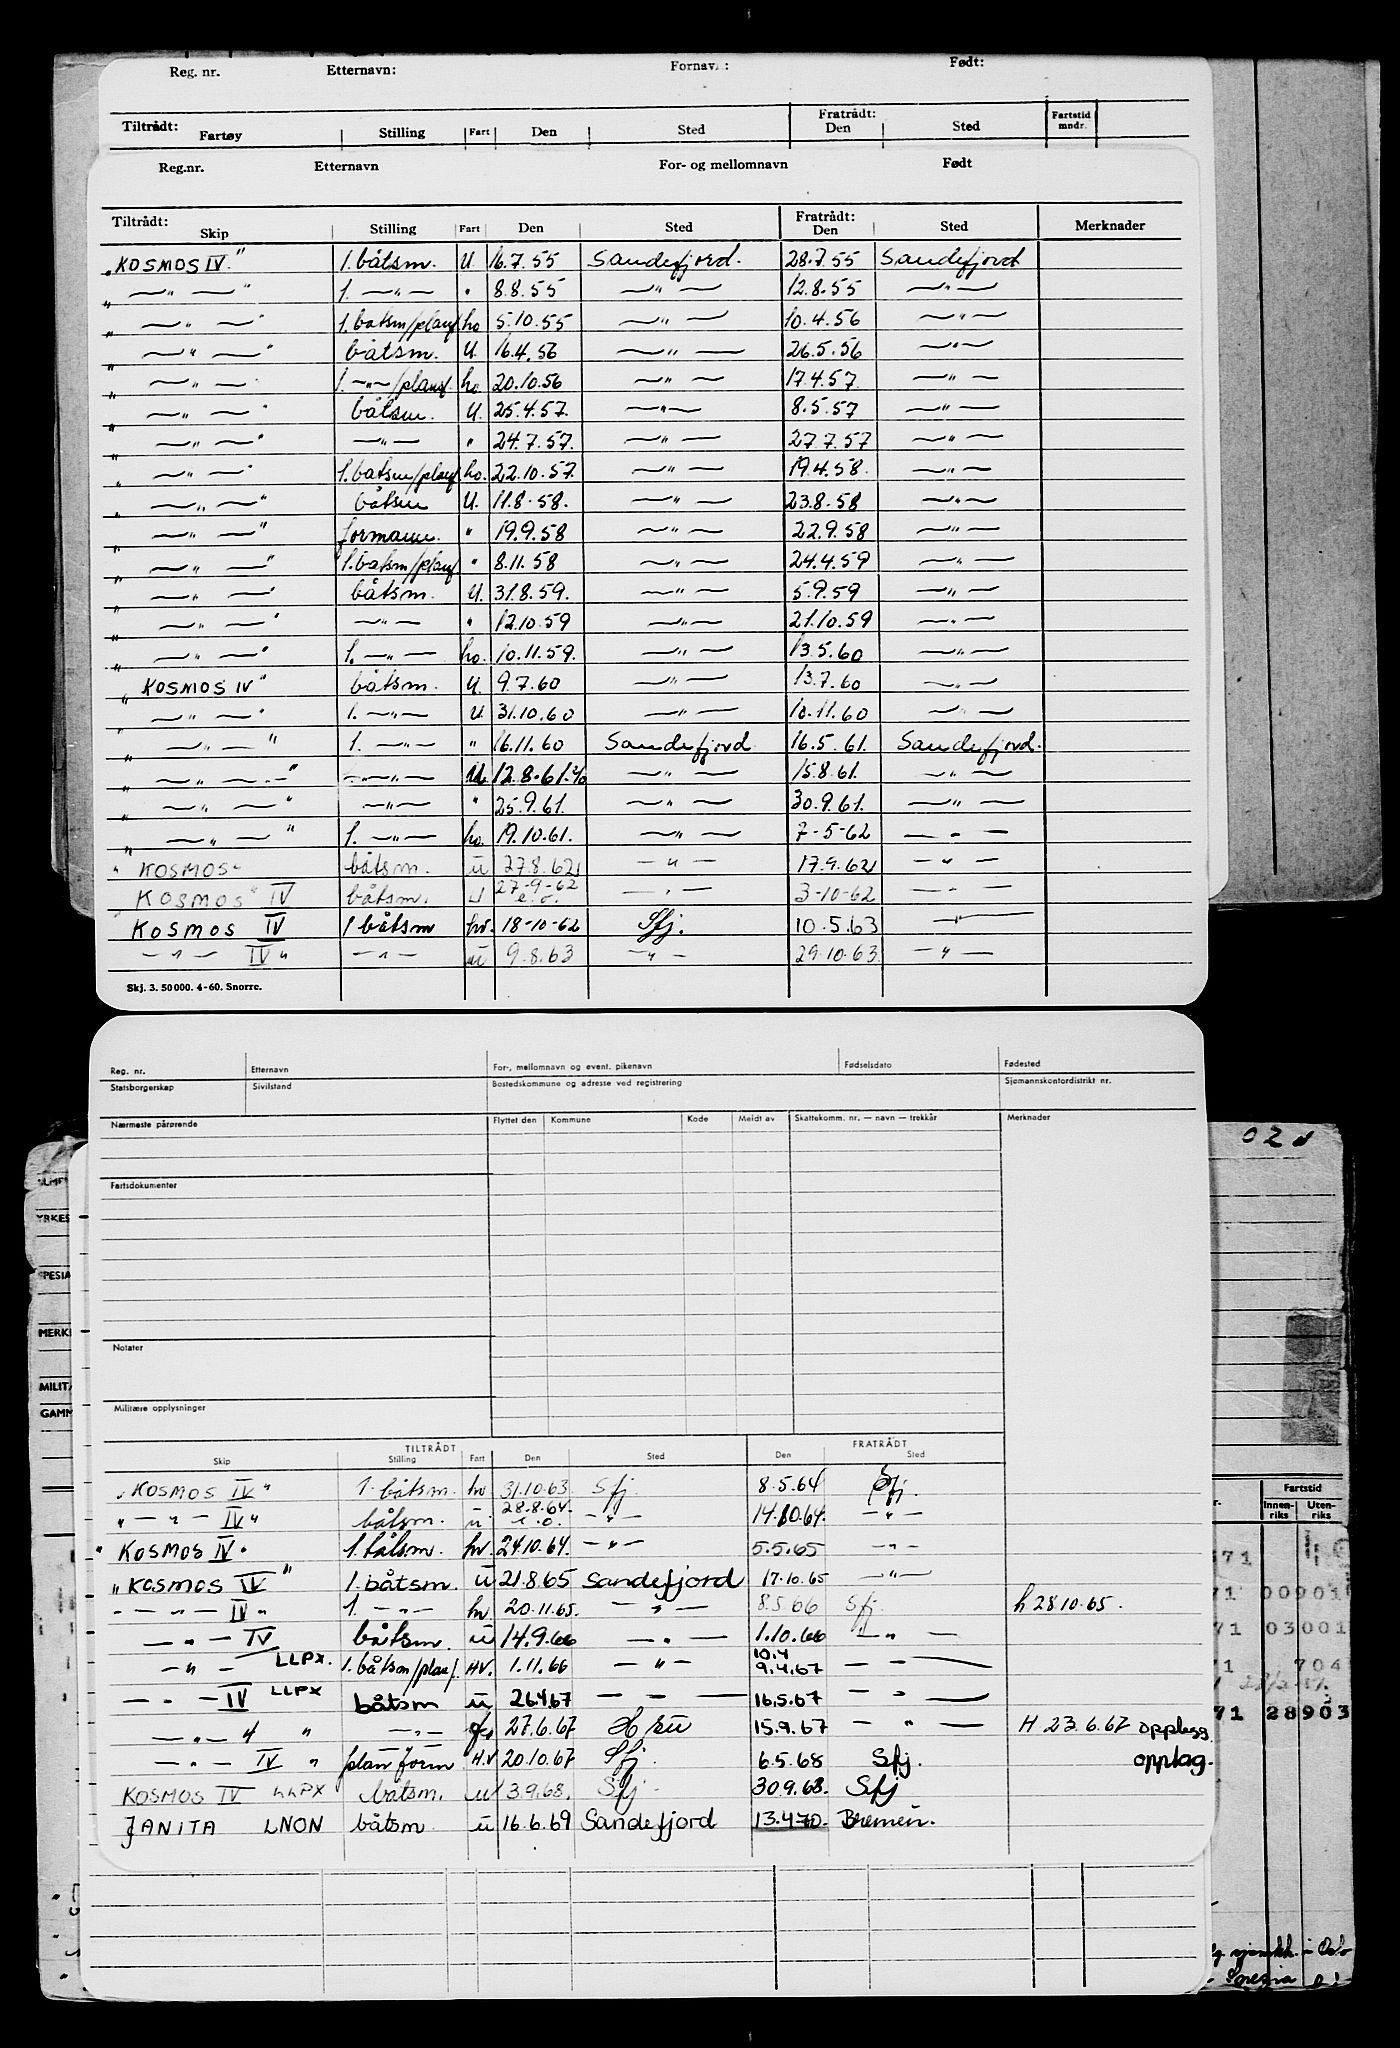 Reg. nr. Etternavn: Fornavn: Født:
Tiltrådt: Fratrådt: Fartstid
Fartøy Stilling Fart Den Sted Den Sted mndr.
Reg.nr. Etternavn For- og mellomnavn Født
Tiltrådt: Fratrådt:
Skip Stilling Fart Den Sted Den Sted Merknader
„KOSMOS IV." 1. båtsm. U. 16.7.55 Sandefjord. 28.7.55 Sandefjord
„ —„— " 1. —„— " 8.8.55 —„— 12.8.55 —„—
„ —„— " 1. båtsm/planf ho 5.10.55 —„— 10.4.56 —„—
„ —„— " båtsm. U. 16.4.56 —„— 26.5.56 —„—
„ —„— " 1. —„—/planf. ho. 20.10.56 —„— 17.4.57 —„—
„ —„— " båtsm. U. 25.4.57. —„— 8.5.57 —„—
„ —„— " —„— " 24.7.57. —„— 27.7.57 —„—
„ —„— " 1. båtsm/planf ho. 22.10.57. —„— 19.4.58. —„—
„ —„— " båtsm U. 11.8.58. —„— 23.8.58 —„—
„ —„— " formann. " 19.9.58 —„— 22.9.58 —„—
„ —„— " 1. båtsm/planf " 8.11.58 —„— 24.4.59 —„—
„ —„— " båtsm. U. 31.8.59. —„— 5.9.59 —„—
„ —„— " —„— " 12.10.59 —„— 21.10.59 —„—
„ —„— " 1. —„— ho. 10.11.59. —„— 13.5.60 —„—
„ KOSMOS IV" båtsm. U. 9.7.60 —„— 13.7.60 —„—
„ —„— " 1. —„— U. 31.10.60 —„— 10.11.60 —„—
„ —„— " 1. —„— " 16.11.60 Sandefjord 16.5.61. Sandefjord.
„ —„— " —„— U. 12.8.61. —„— 15.8.61. —„—
„ —„— " —„— " 25.9.61. —„— 30.9.61. —„—
„ —„— " 1. —„— ho. 19.10.61. —„— 7-5-62 —„—
" KOSMOS" båtsm. u 27.8.62 —„— 17.9.62 —„—
KOSMOS" IV båtsm. u 27-9-62 e.o. —„— 3-10-62 —„—
KOSMOS IV 1 båtsm hv. 18-10-62 Sfj. 10.5.63 —„—
—„— IV " —„— u 9.8.63 —„— 29.10.63. —„—
Skj. 3. 50 000. 4-60. Snorre.
Reg. nr. Etternavn For-, mellomnavn og event. pikenavn Fødselsdato Fødested
Statsborgerskap Sivilstand Bostedskommune og adresse ved registrering Sjømannskontordistrikt nr.
Nærmeste pårørende Flyttet den Kommune Kode Meldt av Skattekomm. nr. — navn — trekkår Merknader
Fartsdokumenter
Notater
Militære opplysninger
TILTRÅDT FRATRÅDT
Skip Stilling Fart Den Sted Den Sted
„KOSMOS IV" 1. båtsm. hv 31.10.63. Sfj. 8.5.64 Sfj.
„ —„— IV " båtsm. u 28.8.64. e.o. —„— 14.10.64. —„—
" KOSMOS IV" 1. båtsm. hv. 24.10.64. —„— 5.5.65 —„—
„KOSMOS IV" 1. båtsm. u 21.8.65 Sandefjord 17.10.65 —„—
—„— IV " 1. —„— hv 20.11.65. —„— 8.5.66 Sfj. h 28.10.65.
—„— IV båtsm. u 14.9.66 —„— 1.10.66 —„—
—„— LLPX. 1. båtsm/planf. HV. 1.11.66 —„— 10.4 9.4.67 —„—
—„— IV LLPX båtsm u 26.4.67 — — 16.5.67 —„—
—„— " " —„— 27.6.67 15.9.67 —„— H 23.6.67 opplegg
—„— IV " plan form H.V 20.10.67 Sfj. 6.5.68 Sfj. opplag.
KOSMOS IV LLPX båtsm. u 3.9.68. Sfj. 30.9.68. Sfj
JANITA LNON båtsm. u 16.6.69 Sandefjord 13.4.70. Bremen.
YRKES
MERK
MILIT
GAMM
Fartstid
Innen- Uten-
riks riks
71
71 00901
71 03001
71 704
71 28903
i Oslo